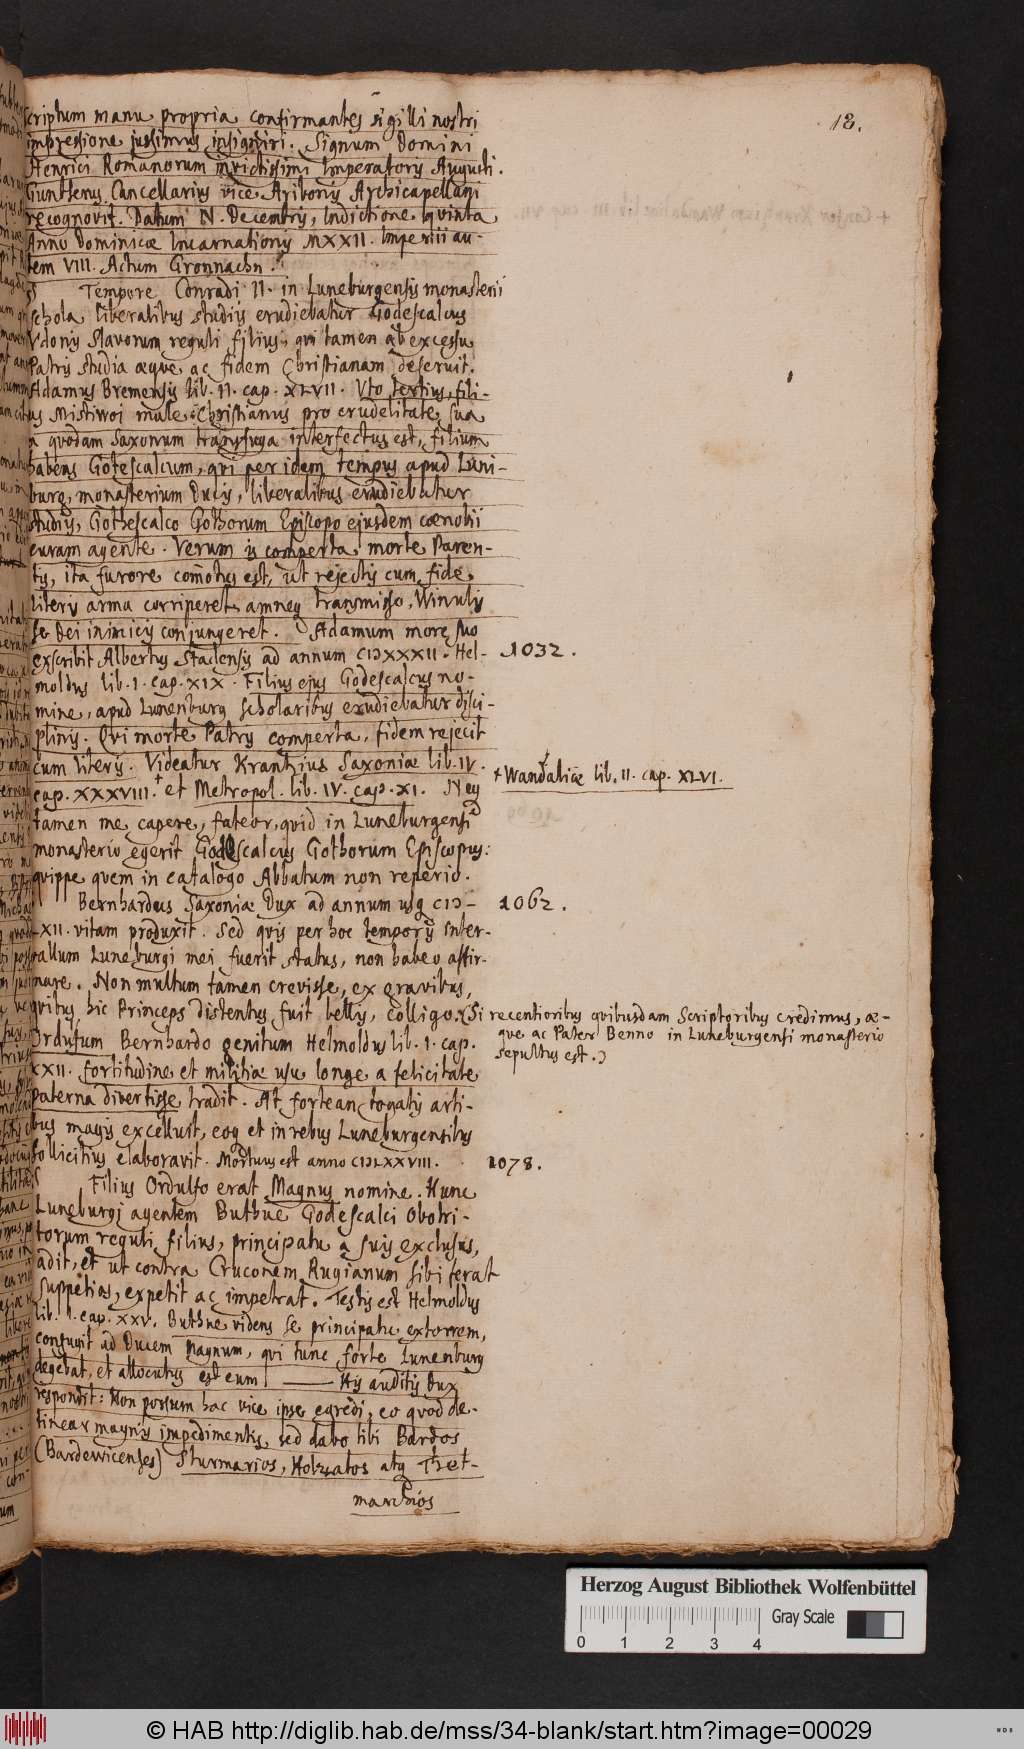 18.
scriptum manu propria confirmantes sigilli nostri
impressione jussimus insigniri. Signum Domini
Henrici Romanorum invictissimi Imperatoris Augusti.
Guntherus Cancellarius vice Aribonis Archicapellani
recognovit. Datum N. Decembris, Indictione quinta
Anno Dominicæ Incarnationis MXXII. Imperii au-
tem VIII. Actum Gronnachn.
Tempore Conradi II. in Luneburgensis monasterii
schola liberalibus studiis erudiebatur Godescalcus
Udonis Slavorum reguli filius, qui tamen ab excessu
Patris studia æque ac fidem Christianam deseruit.
Adamus Bremensis lib. II. cap. XLVII. Uto tertius, fili-
us Mistiwoi male Christianus pro crudelitate sua
a quodam Saxonum transfuga interfectus est, filium
habens Gotescalcum, qui per idem tempus apud Luni-
burg, monasterium Ducis, liberalibus erudiebatur
studiis, Gothescalco Gothorum Episcopo ejusdem cœnobii
curam agente. Verum is comperta morte Paren-
tis, ita furore com̄otus est, ut rejectis cum fide
literis arma corriperet, amneq transmisso, Winulis
se Dei inimicis conjungeret. Adamum more suo
exscribit Albertus Stadensis ad annum CIƆXXXII. Hel-
1032.
moldus lib. I. cap. XIX. Filius ejus Godescalcus no-
mine, apud Lunenburg scholaribus erudiebatur disci-
plinis. Qui morte Patris comperta, fidem rejecit
cum literis. Videatur Krantzius Saxoniæ lib. IV.
cap. XXXVIII.+ et Metropol. lib. IV. cap. XI. Neq
+ Wandaliæ lib. II. cap. XLVI.
tamen me capere, fateor, quid in Luneburgensi
monasterio egerit Godescalcus Gothorum Episcopus:
quippe quem in catalogo Abbatum non reperio.
Bernhardus Saxoniæ Dux ad annum usq CIƆ-
1062.
LXII. vitam produxit. Sed quis per hoc temporis inter-
vallum Luneburgi mei fuerit status, non habeo affir-
mare. Non multum tamen crevisse, ex gravibus,
quibus hic Princeps distentus fuit bellis, colligo. (Si recentioribus quibusdam Scriptoribus credimus, æ-
que ac Pater Benno in Luneburgensi monasterio
sepultus est.)
Ordulfum Bernhardo genitum Helmoldus lib. I. cap.
XXII. fortitudine et militiæ usu longe a felicitate
paterna divertisse tradit. At fortean togatis arti-
bus magis excelluit, eoq et in rebus Luneburgensibus
sollicitius elaboravit. Mortuus est anno CIƆLXXVIII.
1078.
Filius Ordulfo erat Magnus nomine. Hunc
Luneburgi agentem Buthue Godescalci Obotri-
torum reguli filius, principatu a suis exclusus,
adit, et ut contra Cruconem Rugianum sibi ferat
suppetias, expetit ac impetrat. Testis est Helmoldus
lib. I. cap. XXV. Buthue videns se principatu extorrem,
confugit ad Ducem Magnum, qui tunc forte Lunenburg
degebat, et allocutus est eum. — His auditis Dux
respondit: Non possum hac vice ipse egredi, eo quod de-
tinear magnis impedimentis, sed dabo tibi Bardos
(Bardewicenses) Sturmarios, Holzatos atq Thet-
marchios
Herzog August Bibliothek Wolfenbüttel
0 1 2 3 4
Gray Scale
© HAB http://diglib.hab.de/mss/34-blank/start.htm?image=00029